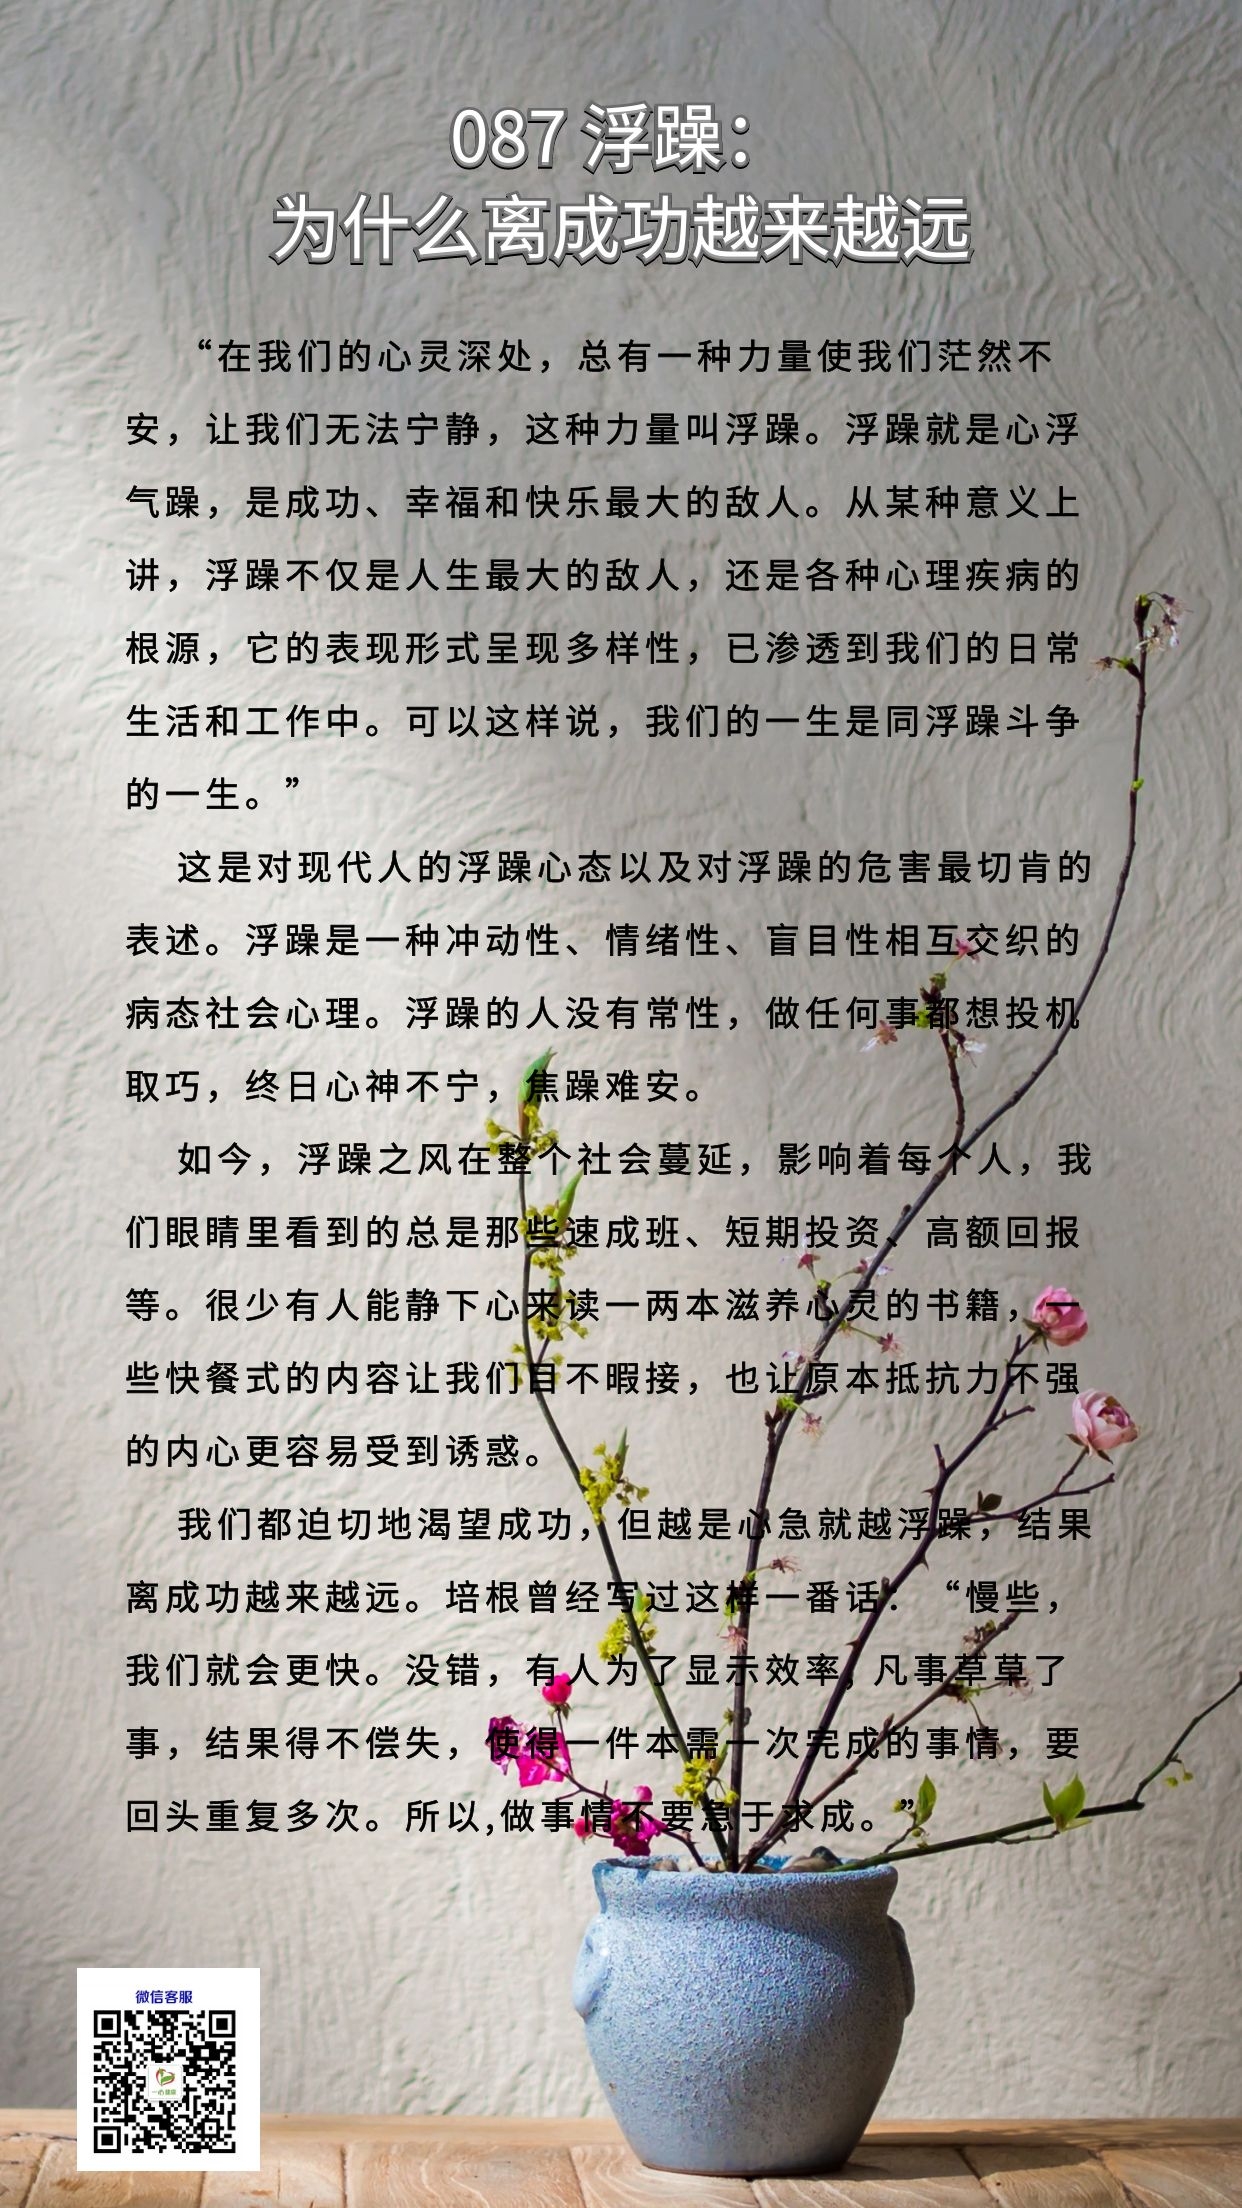 087 浮躁：
为什么离成功越来越远
“在我们的心灵深处，总有一种力量使我们茫然不
安，让我们无法宁静，这种力量叫浮躁。浮躁就是心浮
气躁，是成功、幸福和快乐最大的敌人。从某种意义上
讲，浮躁不仅是人生最大的敌人，还是各种心理疾病的
根源，它的表现形式呈现多样性，已渗透到我们的日常
生活和工作中。可以这样说，我们的一生是同浮躁斗争
的一生。”
这是对现代人的浮躁心态以及对浮躁的危害最切肯的
表述。浮躁是一种冲动性、情绪性、盲目性相互交织的
病态社会心理。浮躁的人没有常性，做任何事都想投机
取巧，终日心神不宁，焦躁难安。
如今，浮躁之风在整个社会蔓延，影响着每个人，我
们眼睛里看到的总是那些速成班、短期投资、高额回报
等。很少有人能静下心来读一两本滋养心灵的书籍，一
些快餐式的内容让我们目不暇接，也让原本抵抗力不强
的内心更容易受到诱惑。
我们都迫切地渴望成功，但越是心急就越浮躁，结果
离成功越来越远。培根曾经写过这样一番话：“慢些，
我们就会更快。没错，有人为了显示效率, 凡事草草了
事，结果得不偿失，使得一件本需一次完成的事情，要
回头重复多次。所以,做事情不要急于求成。”
微信客服
一心健康